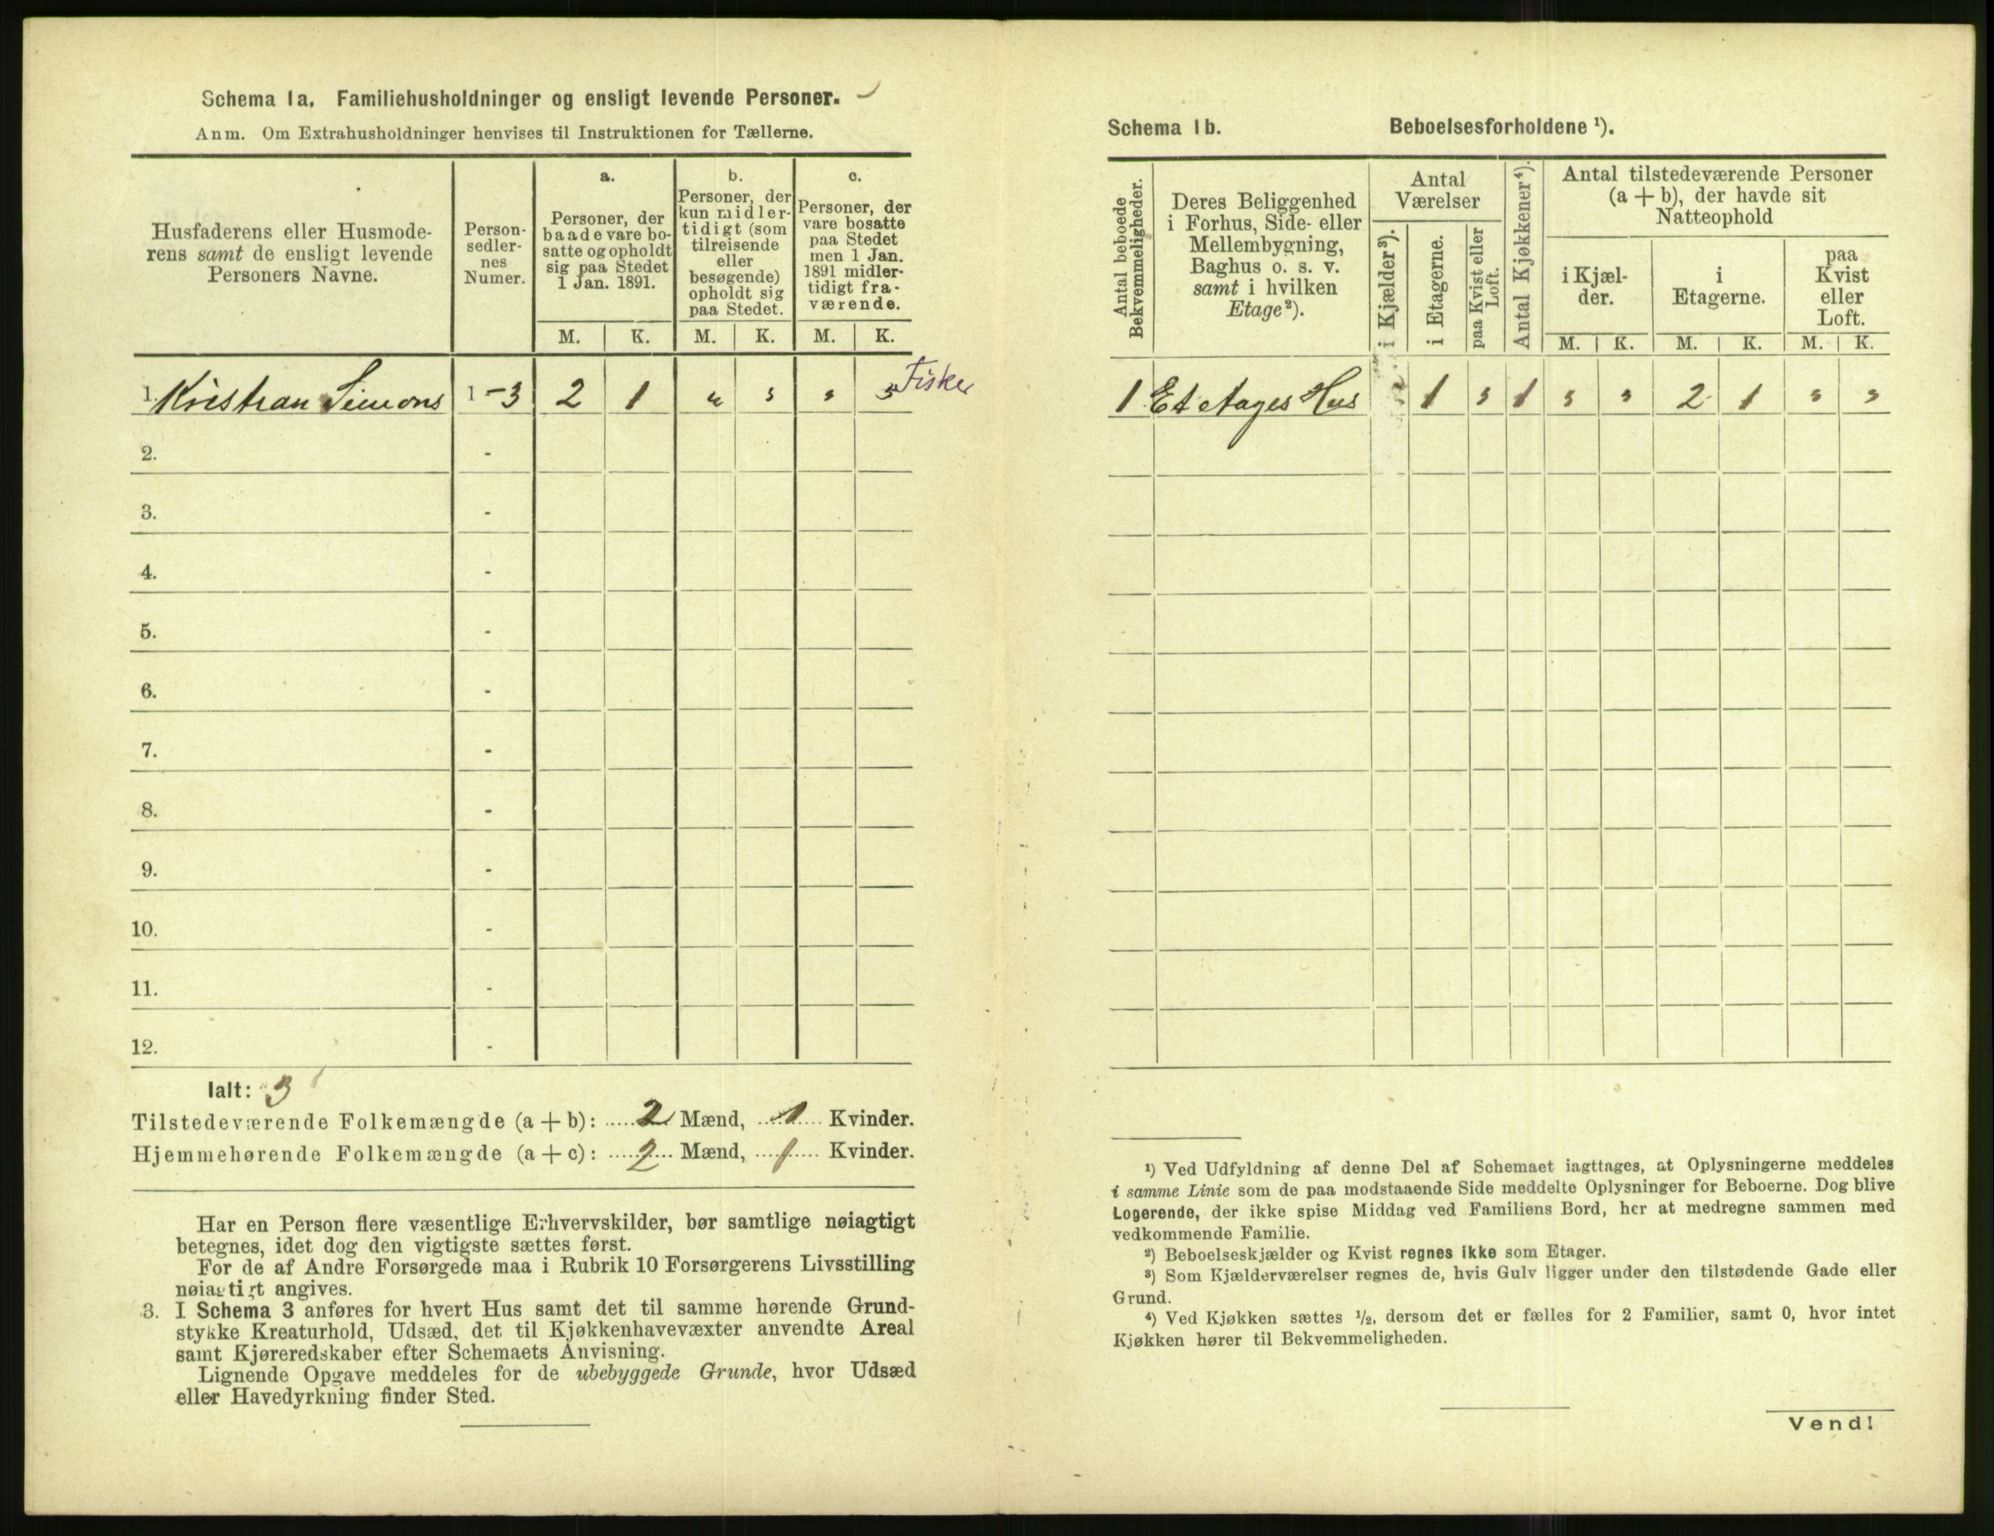 Schema 1a. Familiehusholdninger og ensligt levende Personer.
Anm. Om Extrahusholdninger henvises til Instruktionen for Tællerne.
Husfaderens eller Husmode-
rens samt de ensligt levende
Personers Navne.
Person-
sedler-
nes
Numer.
a.
Personer, der
baade vare bo-
satte og opholdt
sig paa Stedet
1 Jan. 1891.
b.
Personer, der
kun midler-
tidigt (som
tilreisende
eller
besøgende)
opholdt sig
paa Stedet.
c.
Personer, der
vare bosatte
paa Stedet
men 1 Jan.
1891 midler-
tidigt fra-
værende.
M. K. M. K. M. K.
1. Kristian Simons 1-3 2 1 " " " " Fisker
2. -
3. -
4. -
5. -
6. -
7. -
8. -
9. -
10. -
11. -
12. -
Ialt: 3
Tilstedeværende Folkemængde (a + b): 2 Mænd, 1 Kvinder.
Hjemmehørende Folkemængde (a + c): 2 Mænd, 1 Kvinder.
Har en Person flere væsentlige Erhvervskilder, bør samtlige nøiagtigt
betegnes, idet dog den vigtigste sættes først.
For de af Andre Forsørgede maa i Rubrik 10 Forsørgerens Livsstilling
nøiagtigt angives.
3. I Schema 3 anføres for hvert Hus samt det til samme hørende Grund-
stykke Kreaturhold, Udsæd, det til Kjøkkenhavevæxter anvendte Areal
samt Kjøreredskaber efter Schemaets Anvisning.
Lignende Opgave meddeles for de ubebyggede Grunde, hvor Udsæd
eller Havedyrkning finder Sted.
Schema 1b. Beboelsesforholdene ¹).
Antal beboede
Bekvemmeligheder.
Deres Beliggenhed
i Forhus, Side- eller
Mellembygning,
Baghus o. s. v.
samt i hvilken
Etage²).
Antal
Værelser
i Kjælder³).
i Etagerne.
paa Kvist eller
Loft.
Antal Kjøkkener⁴).
Antal tilstedeværende Personer
(a + b), der havde sit
Natteophold
i Kjæl-
der.
i
Etagerne.
paa
Kvist
eller
Loft.
M. K. M. K. M. K.
1 Et etages Hus 1 " 1 " " 2 1 " "
¹) Ved Udfyldning af denne Del af Schemaet iagttages, at Oplysningerne meddeles
i samme Linie som de paa modstaaende Side meddelte Oplysninger for Beboerne. Dog blive
Logerende, der ikke spise Middag ved Familiens Bord, her at medregne sammen med
vedkommende Familie.
²) Beboelseskjælder og Kvist regnes ikke som Etager.
³) Som Kjælderværelser regnes de, hvis Gulv ligger under den tilstødende Gade eller
Grund.
⁴) Ved Kjøkken sættes ½, dersom det er fælles for 2 Familier, samt 0, hvor intet
Kjøkken hører til Bekvemmeligheden.
Vend!